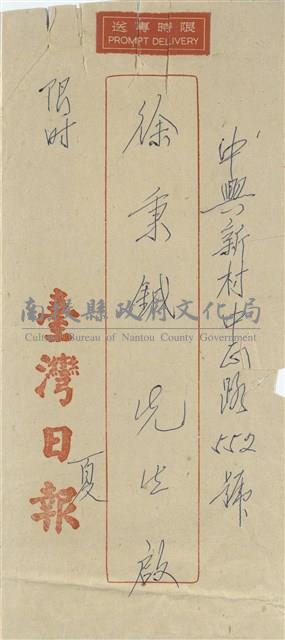 送專時限
PROMPT DELIVERY
中興新村中正路552號
徐秉鉞先生啟
限时
臺灣日報
夏
南投縣政府文化局
Cultural Bureau of Nantou County Government